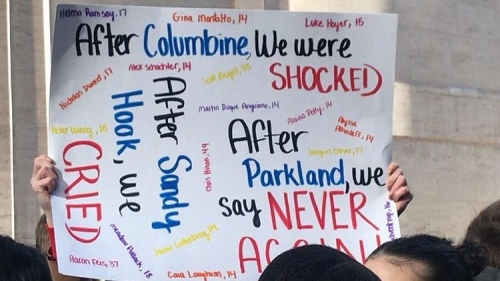 Helena Ramsay, 17
Gina Montalto, 14
Luke Hoyer, 15
After Columbine, We were
SHOCKED
Alex Schachter, 14
Scott Beigel, 35
Nicholas Dworet, 17
Martin Duque Anguiano, 14
Alaina Petty, 14
Alyssa Alhadeff, 14
Peter Wang, 15
After Sandy
Hook, we
CRIED
After
Parkland, we
say NEVER
AGAIN
Joaquin Oliver, 17
Chris Hixon, 49
Meadow Pollack, 18
Jaime Guttenberg, 14
Aaron Feis, 37
Cara Loughran, 14